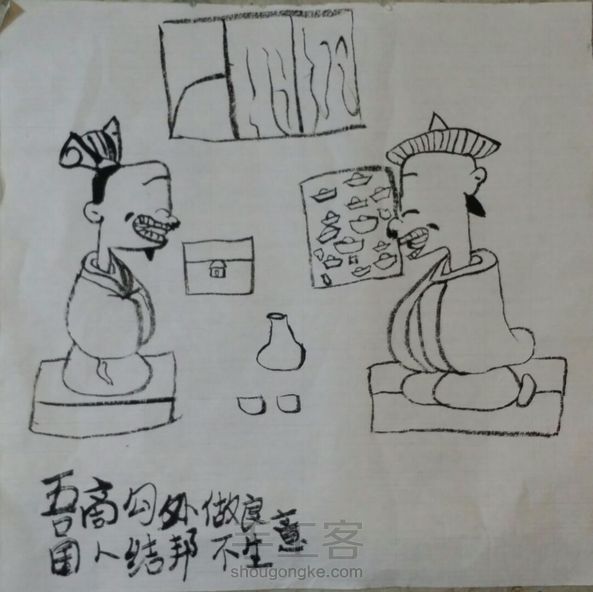 吾国
商人
勾结
外邦
做不
良生
意
手工客
shougongke.com